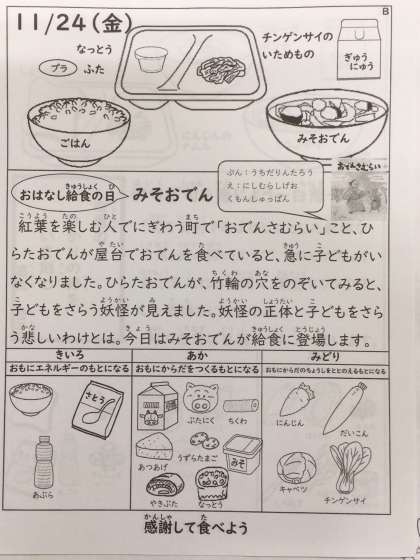 B
11/24(金)
なっとう
プラ ふた
チンゲンサイの
いためもの
ぎゅう
にゅう
ごはん
みそおでん
おでんさむらい
ぶん：うちだりんたろう
え：にしむらしげお
くもんしゅっぱん
おはなし給食の日 みそおでん
紅葉を楽しむ人でにぎわう町で「おでんさむらい」こと、ひ
らたおでんが屋台でおでんを食べていると、急に子どもがい
なくなりました。ひらたおでんが、竹輪の穴をのぞいてみると、
子どもをさらう妖怪が見えました。妖怪の正体と子どもをさら
う悲しいわけとは。今日はみそおでんが給食に登場します。
きいろ あか みどり
おもにエネルギーのもとになる おもにからだをつくるもとになる おもにからだのちょうしをととのえるもとになる
さとう
ぶたにく ちくわ
にんじん
だいこん
うずらたまご
あつあげ
みそ
あぶら
やきぶた
なっとう
キャベツ
チンゲンサイ
感謝して食べよう